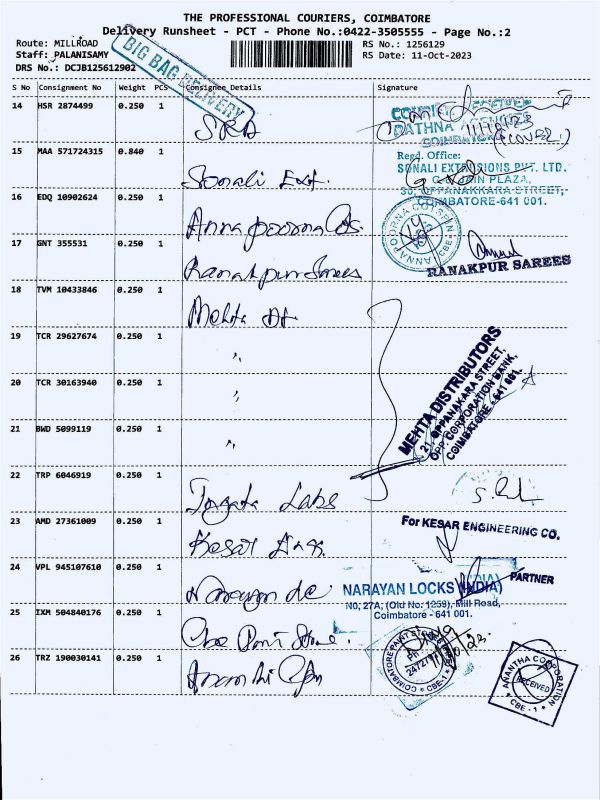 THE PROFESSIONAL COURIERS, COIMBATORE
Delivery Runsheet - PCT - Phone No.:0422-3505555 - Page No.:2
Route: MILLROAD
RS No.: 1256129
Staff: PALANISAMY
RS Date: 11-Oct-2023
DRS No.: DCJB125612902
BIG BAG DELIVERY
S No Consignment No Weight PCS Consignee Details Signature
14 HSR 2874499 0.250 1
DATHNA
COIMBATORE
11/10/23
15 MAA 571724315 0.840 1 Sonali Ext.
Regd. Office:
SONALI EXTRUSIONS PVT. LTD.
PLAZA,
30, OPPANAKKARA STREET,
COIMBATORE-641 001.
16 EDQ 10902624 0.250 1 Annapoorna
ANNA POORNA
CBE-1
17 GNT 355531 0.250 1 Ranakpur Sarees
RANAKPUR SAREES
18 TVM 10433846 0.250 1 Mehta Dt
19 TCR 29627674 0.250 1 "
20 TCR 30163940 0.250 1 "
21 BWD 5099119 0.250 1 "
MEHTA DISTRIBUTORS
21, OPPANAKARA STREET,
OPP. CORPORATION BANK,
COIMBATORE - 641 001.
22 TRP 6046919 0.250 1 Labs
23 AMD 27361009 0.250 1 Kesar Eng.
For KESAR ENGINEERING CO.
PARTNER
24 VPL 945107610 0.250 1 Narayan
NARAYAN LOCKS (INDIA)
NO, 27A, (Old No. 1259), Mill Road,
Coimbatore - 641 001.
25 IXM 504840176 0.250 1 Cbe Paint Store
COIMBATORE PAINT
CBE-1
26 TRZ 190030141 0.250 1
ANANTHA CORPORATION
RECEIVED
CBE - 1